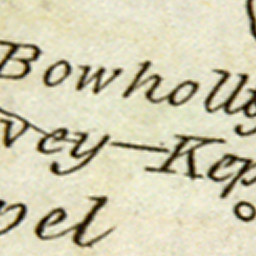 Bowholly
vey-Kep
pel